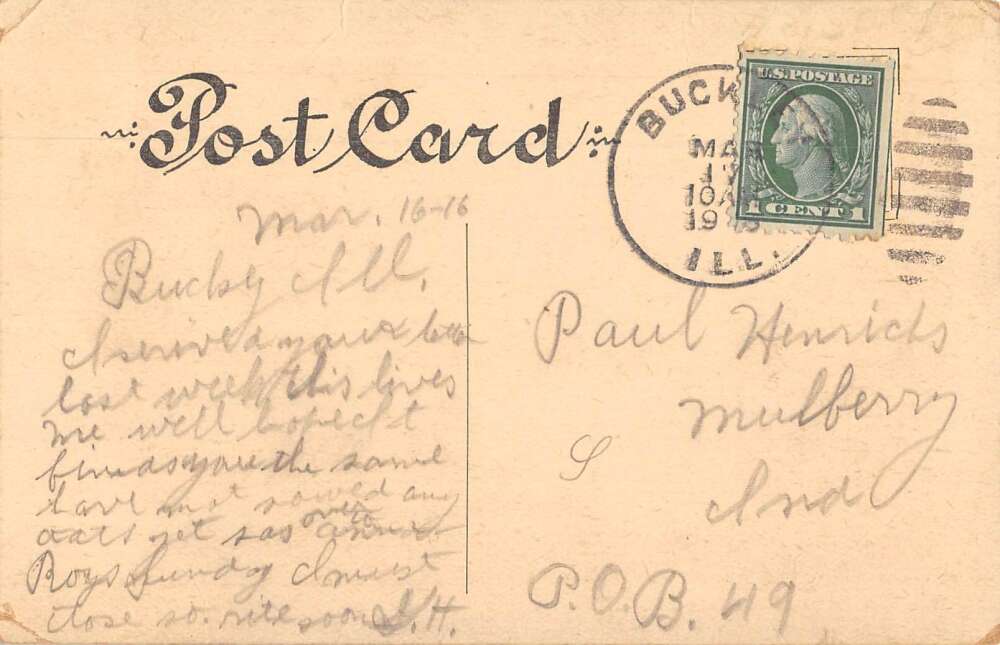 Post Card
BUCK
MAR
17
10 AM
19
ILL.
U.S. POSTAGE
1 CENT 1
Mar. 16-16
Buckly Ill.
I recived your
last week this lives
me well hope it
finds you the same
have not sowed any
oats yet
over
Roys Sunday I must
close so. rite soon I.H.
Paul Henrichs
Mulberry
Ind
P.O.B. 49